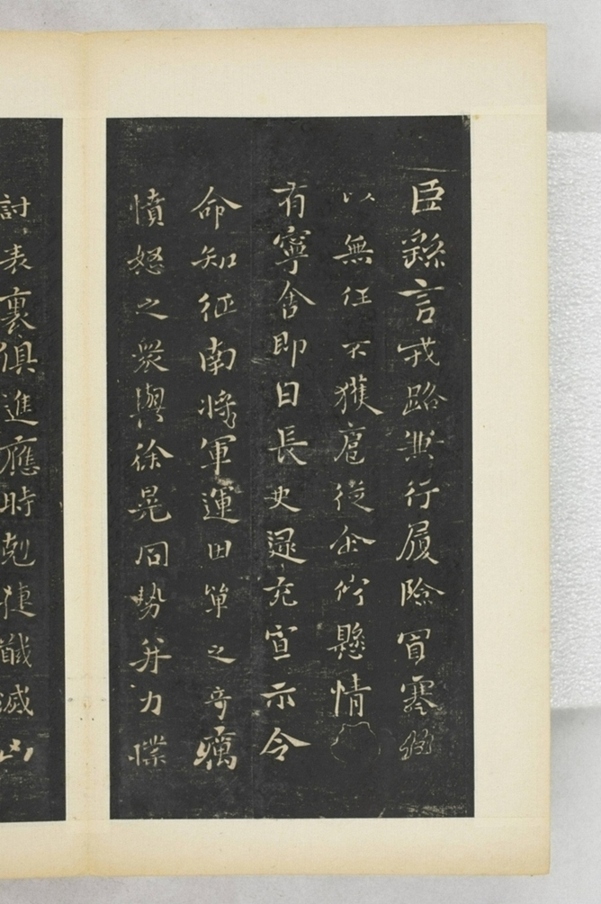 臣繇言戎路兼行履險冒寒
以無任不獲扈從企佇懸情
有寧舍即日長史逯充宣示令
命知征南將軍運田單之奇厲
憤怒之眾與徐晃同勢并力撲
討表裏俱進應時剋捷馘滅凶